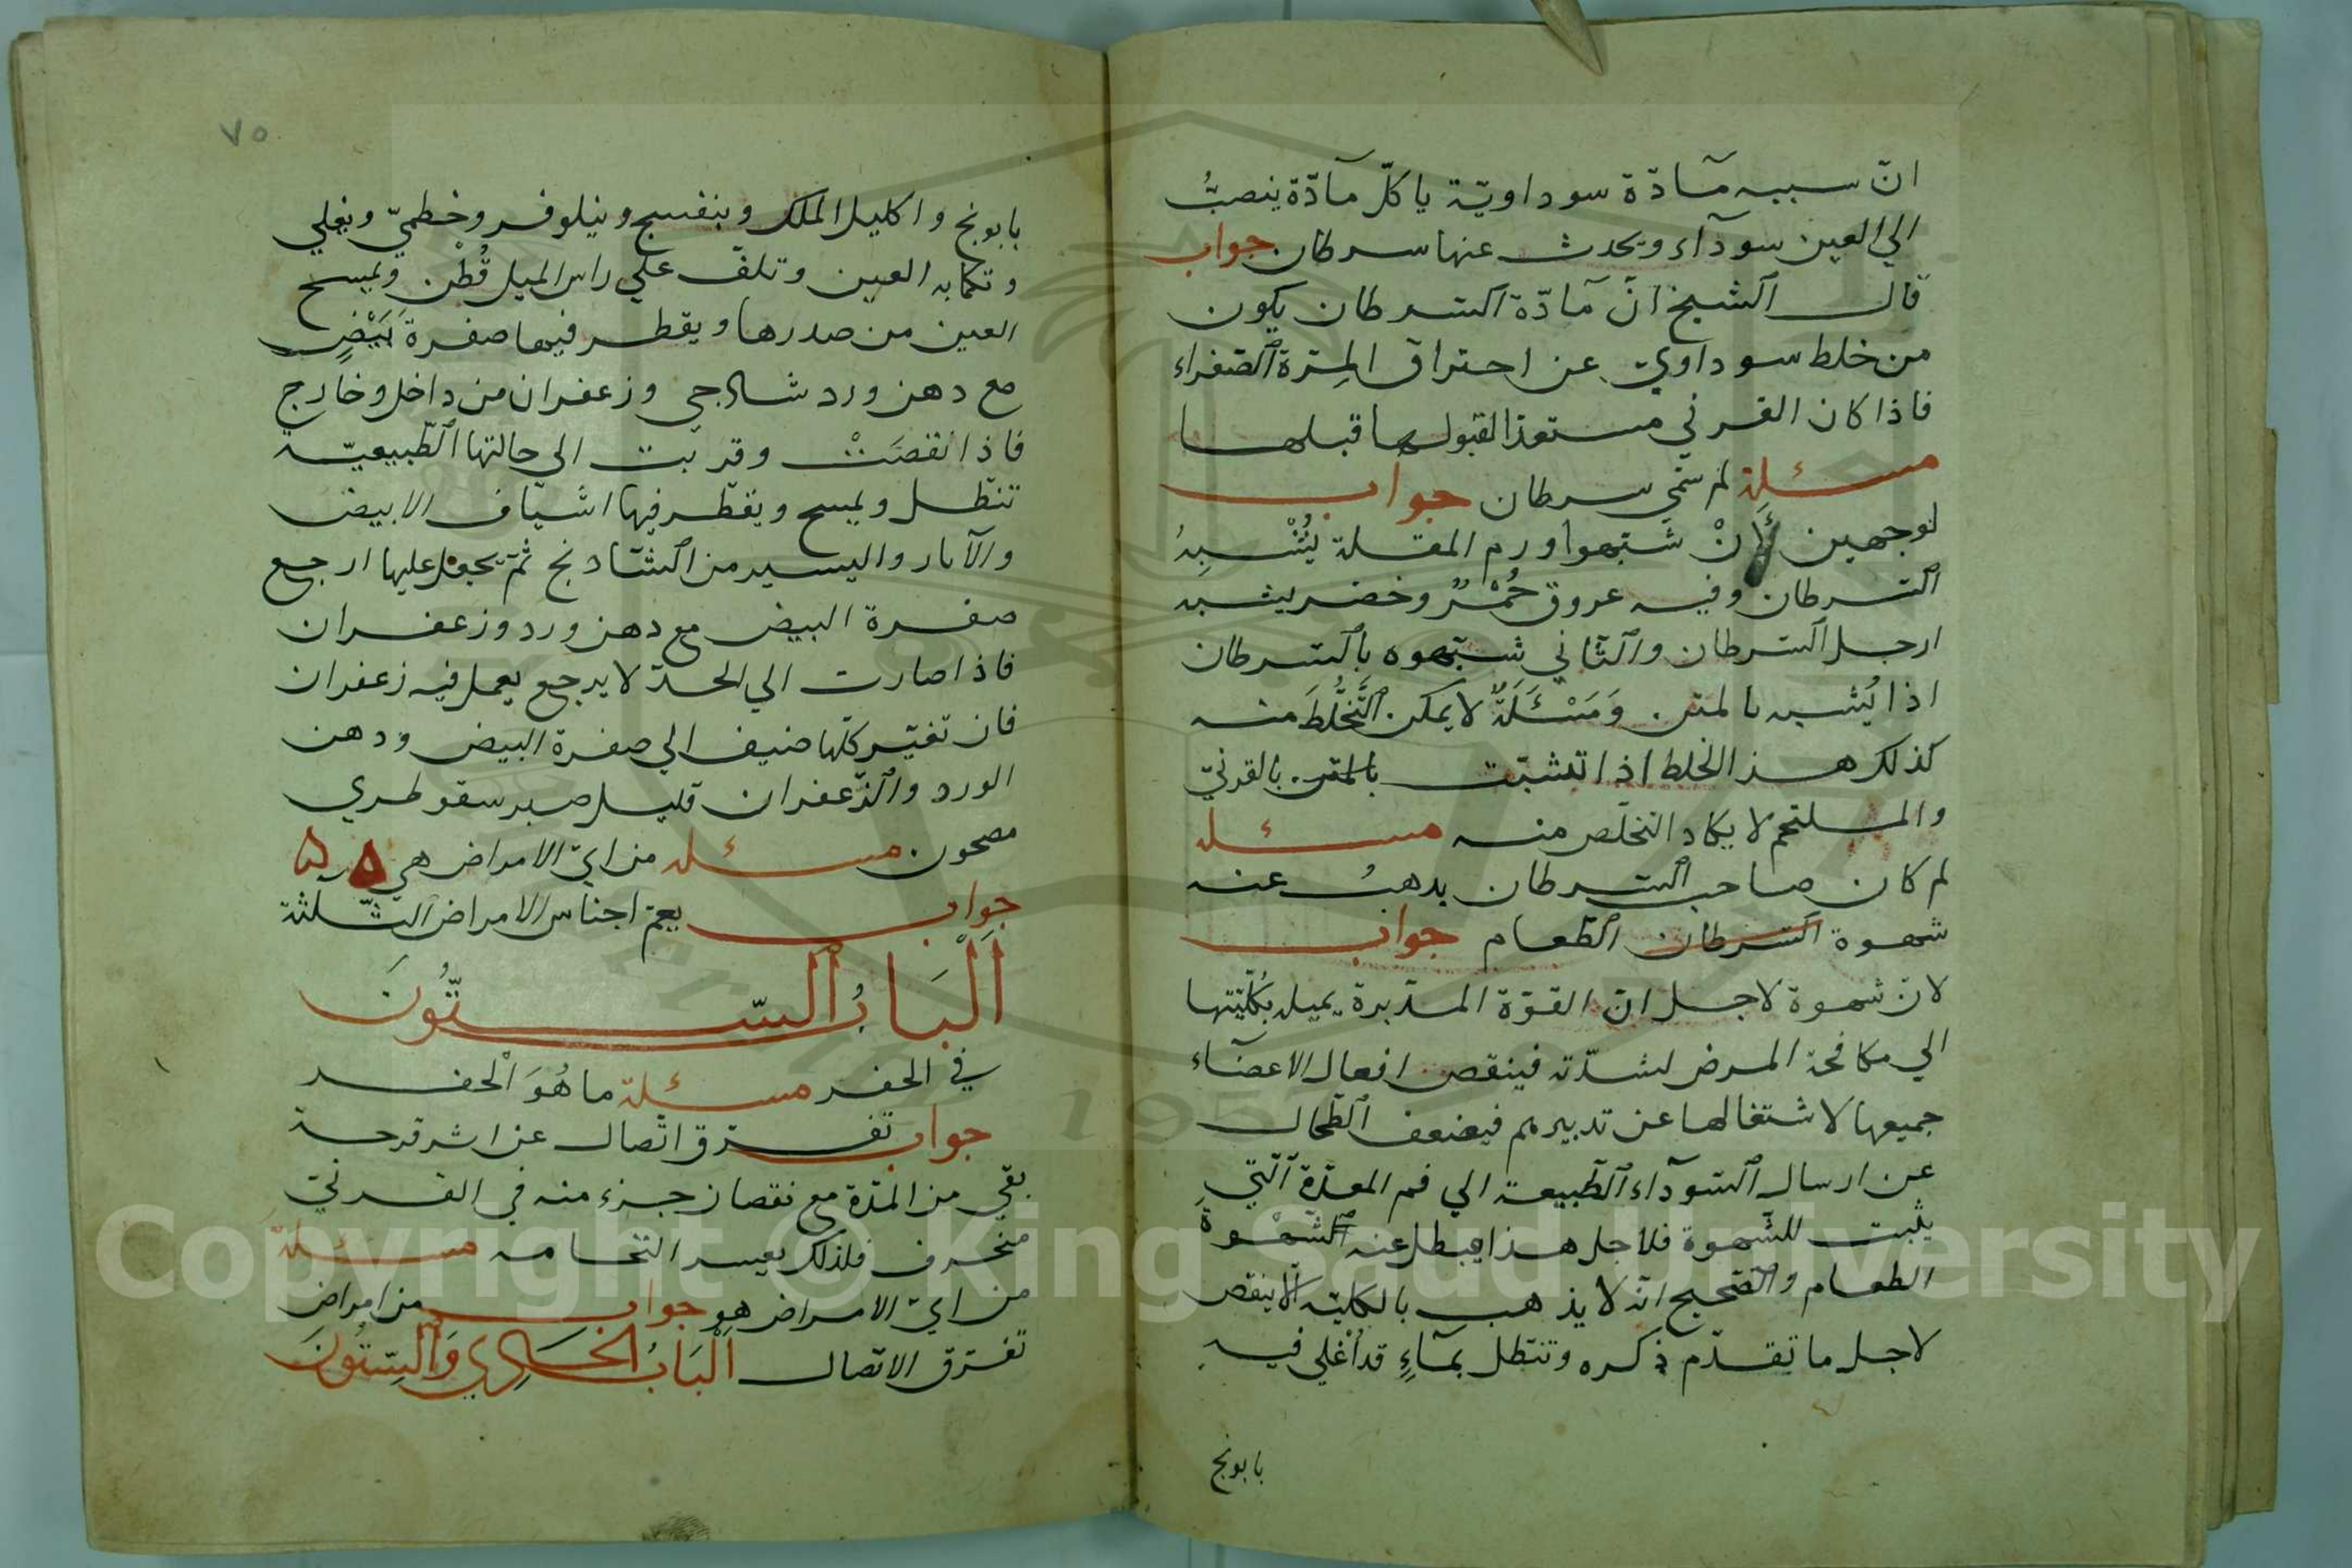 انّ سببه مآدّة سوداويّة ياكلّ مآدّة ينصبُّ
الي العين سودآء ويحدث عنها سرطان جواب
قال الشيخ انّ مآدّة السّرطان يكون
من خلط سوداويّ عن احتراق المِرّة الصّفراء
فاذا كان القرني مستعدّا لقبولها قبلها
مسئلة لم سمّي سرطان جواب
لوجهين لِأَنْ شبّهوا ورم المقلة يُشْبِهُ
السّرطان وفيه عروق حُمْرٌ وخضر يشبه
ارجل السّرطان والثّاني شبّهوه بالسّرطان
اذا يُشبه بالمتن وَمَسْئَلَةٌ لا يمكن التَّخَلُّطَ منه
كذلك هذ الخلط اذا تشبّت بالمتن بالقرنيّ
والملتحم لا يكاد التخلّص منه مسئله
لم كان صاحب السّرطان يذهبُ عنه
شهوة السّرطان الطّعام جواب
لانّ شهوة لاجل انّ القوّة المدّبرة يميل بكُلّيّتها
الي مكافحة المرض لشدّته فينقص افعال الاعضآء
جميعها لاشتغالها عن تدبيرهم فيضعف الطّحال
عن ارسال السّودآء الطّبيعة الي فم المعدّة الّتي
يثبت للشّهوة فلاجل هذا يبطل عنه الشّهْوةَ
الطعام والصّحيح انّه لا يذهب بالكليّه الّا ينقص
لاجل ما تقدّم ذكره وتنطّل بمآءٍ قد اُغْلي فيه
بابونج
٧٥
بابونج واكليل الملك وبنفسج ونيلوفر وخطميّ ويغلي
وتكمّابه العين وتلفّ علي راس الميل قُطْن ويمسح
العين من صدرها ويقطر فيها صفرة بَيْضٍ
مع دهن ورد شالاجي وزعفران من داخل وخارج
فاذا نقصَتْ وقربت الي حالتها الطّبيعيّة
تنطّل ويمسح ويقطّر فيها اشياف الابيض
والآبار واليسير من الشّادنج ثمّ يجعل عليها ارجع
صفرة البيض مع دهن ورد وزعفران
فاذا صارت الي الحدّ لا يرجع يعمل فيه زعفران
فان تغيّر كلّها ضيف الي صفرة البيض ودهن
الورد والزّعفران قليل صبر سقوطري
مصحون مسئله من ايّ الامراض هي
جواب يعمّ اجناس الامراض الثّلثة
اَلْبَابُ السِّتُّونَ
في الحفر مسئلة ما هُوَ الْحفر
جواب تفرّق اتّصال عن اثر قرحة
بقي من المدّة مع نقصان جزء منه في القرنيّ
منحرف فلذلك يعسر التحامه مسئلةٌ
من ايّ الامراض هو جواب من امراض
تفرّق الاتّصال اَلْبَابُ الْحَادِي وَالسِّتُّونَ